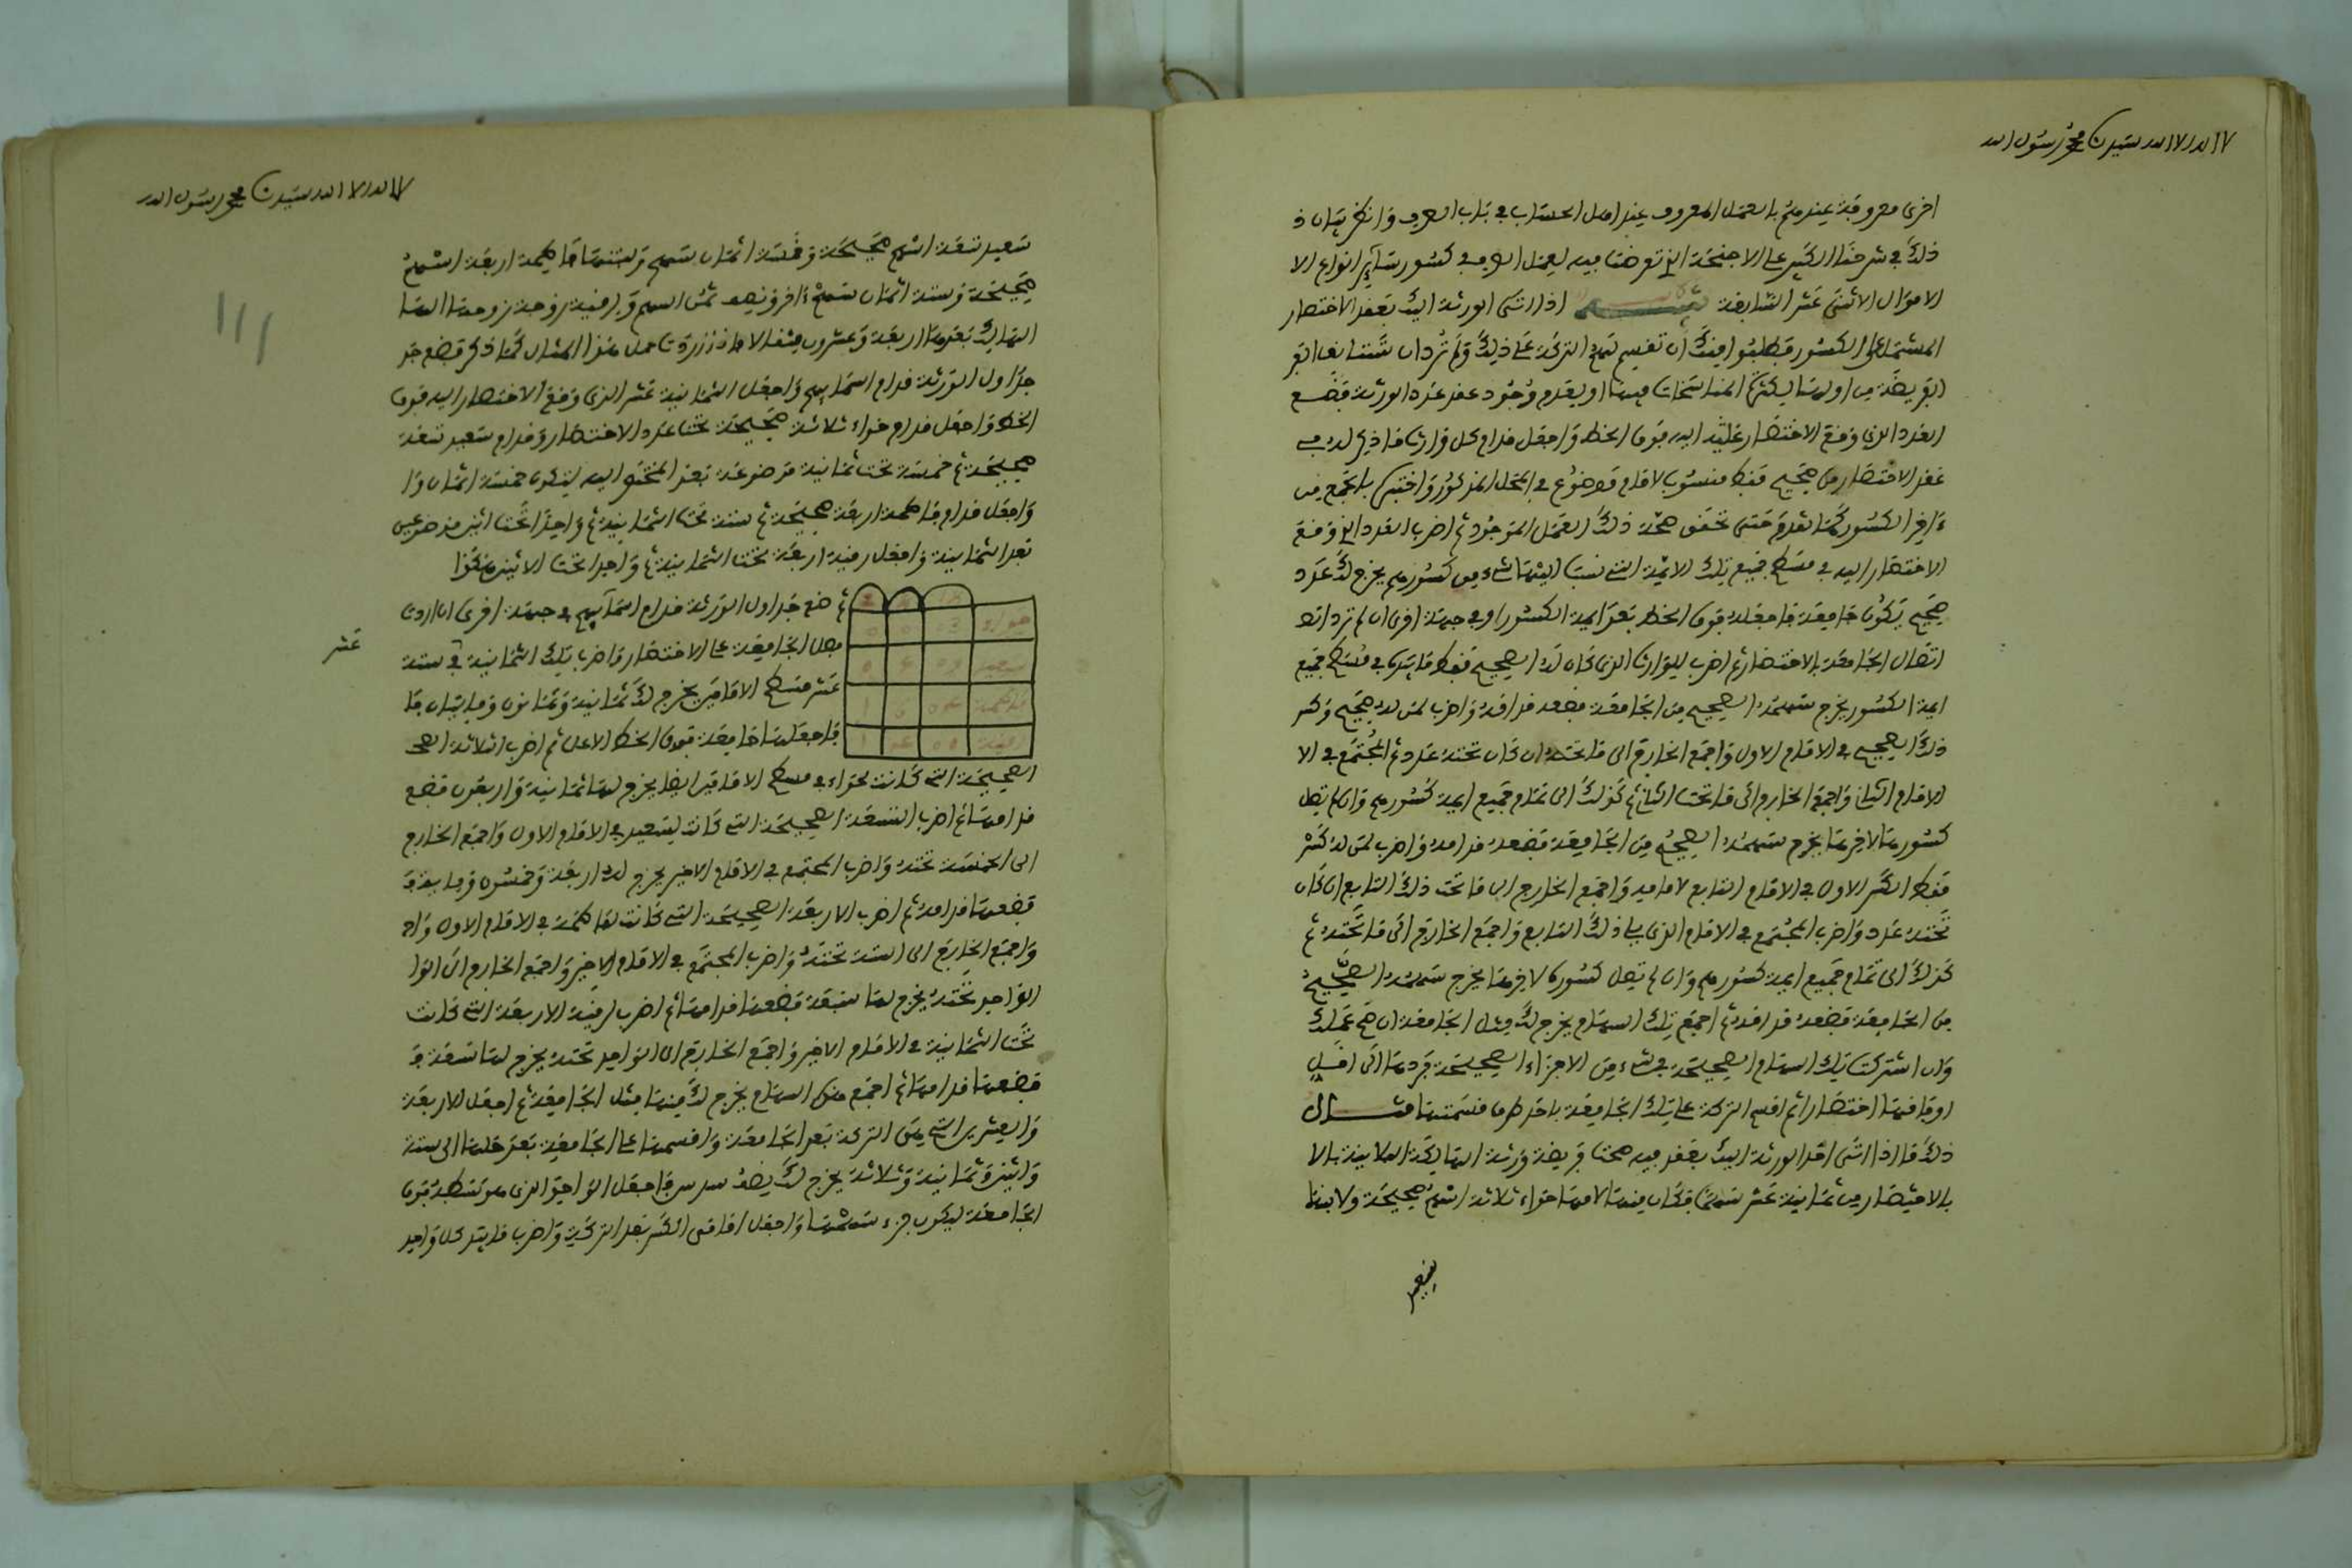 لا اله الا الله سيدنا محمد رسول الله
اخرى معروفة عندهم بالعمل المعروف عند اهل الحساب في باب الصرف وانظر بيان ذ
ذلك في شرحنا الكبير على الاجنحة الذي تعرضنا فيه لعمل الصرف في كسور سآئر انواع الا
الاموال الاثنى عشر السابقة اذا اتى الورثة اليك بعقد الاختصار
المشتمل على الكسور وطلبوا منك ان تقسم لهم التركة على ذلك ولم ترد ان تستانف
الفريضة من اولها لكثرة المناسخات فيها او بعدم وجود عقد عدد الورثة فضع
العدد الذى وقع الاختصار عليه اليه فوق الخط واجعل قدام كل وارث ما ذكر له في
عقد الاختصار من صحيح فقط منسوب لامام موضوع في المحل المذكور واختبر بالجمع من
ءاخر الكسور كما تقدم حتى تحقق صحة ذلك العمل الموجود ثم اضرب العدد الذى وقع
الاختصار اليه في مسطح جميع تلك الائمة التي نسب اليها شيء من كسورهم يخرج لك عدد
صحيح يكون جامعة فاجعله فوق الخط بعد ايمة الكسور او في جهة اخرى ان لم ترد اتصا
اتصال الجامعة بالاختصار ثم اضرب للوارث الذى كان له الصحيح فقط ما بيده في مسطح جميع
ايمة الكسور يخرج سهمه الصحيح من الجامعة فضعه قدامه واضرب لمن له صحيح وكسر
ذلك الصحيح في الامام الاول واجمع الخارج الى ما تحته ان كان تحته عدد ثم المجتمع في الا
الامام الثاني واجمع الخارج الى ما تحت الثاني ثم كذلك الى تمام جميع ايمة كسورهم وان لم تصل
كسورها لاخرها يخرج سهمه الصحيح من الجامعة فضعه قدامه واضرب لمن له كسر
فقط الكسر الاول في الامام التابع لامامه واجمع الخارج الى ما تحت ذلك التابع ان كان
تحته عدد واضرب المجتمع في الامام الذى يلي ذلك التابع واجمع الخارج الى ما تحته ثم
كذلك الى تمام جميع ايمة كسورهم وان لم تصل كسوره لاخرها يخرج سهمه الصحيح
من الجامعة فضعه قدامه ثم اجمع تلك السهام يخرج لك مثل الجامعة ان صح عملك
وان اشتركت تلك السهام الصحيحة في شيء من الاجزاء الصحيحة فردها الى اقل
اوفاقها اختصارا ثم اقسم التركة على تلك الجامعة باحد طرق قسمتها مثـــال
ذلك ما اذا اتى احد الورثة اليك بعقد فيه صحت فريضة ورثة الهالكة الفلانية بالا
بالاختصار من ثمانية عشر سهما فكان منها لامها حواء ثلاثة اسهم صحيحة ولابنها
سعيد
لا اله الا الله سيدنا محمد رسول الله
سعيد تسعة اسهم صحيحة وخمسة اثمان سهم ولبنتها فاطمة اربعة اسهم
صحيحة وستة اثمان سهم ءاخر ونصف ثمن السهم ولرقية زوجة زوجها الها
الهالك بعدها اربعة وعشرون مثقالا فاذا اردت عمل هذا المثال كما ذكر فضع جد
جداول الورثة قدام اسمايهم واجعل الثمانية عشر الذى وقع الاختصار اليه فوق
الخط واجعل قدام حواء ثلاثة صحيحة تحت عدد الاختصار وقدام سعيد تسعة
صحيحة ثم خمسة تحت ثمانية موضوعة بعد المختصر اليه ليكون خمسة اثمان وا
واجعل قدام فاطمة اربعة صحيحة ثم ستة تحت الثمانية ثم واحدا تحت اثنين موضوعين
بعد الثمانية واجعل لرقية اربعة تحت الثمانية ثم واحدا تحت الاثنين هكذا
ثم ضع جداول الورثة قدام اسمآيهم في جهة اخرى ان اردت
فصل الجامعة على الاختصار واضرب تلك الثمانية في ستة
عشر
عشر مسطح الامامين يخرج لك ثمانية وثمانون ومايتان فا
فاجعلها جامعة فوق الخط الاعلى ثم اضرب الثلاثة الصحـ
الصحيحة التي كانت لحواء في مسطح الامامين ايضا يخرج لها ثمانية واربعون فضع
قدامها ثم اضرب التسعة الصحيحة التي كانت لسعيد في الامام الاول واجمع الخارج
الى الخمسة تحته واضرب المجتمع في الامام الاخير يخرج له اربعة وخمسون ومايةفـ
فضعها قدامه ثم اضرب الاربعة الصحيحة التي كانت لفاطمة في الامام الاول واجـ
واجمع الخارج الى الستة تحته واضرب المجتمع في الامام الاخير واجمع الخارج الى الوا
الواحد تحته يخرج لها سبعة فضعها قدامها ثم اضرب لرقية الاربعة التي كانت
تحت الثمانية في الامام الاخير واجمع الخارج الى الواحد تحته يخرج لها تسعة فـ
فضعها قدامها ثم اجمع هذه السهام يخرج لك منها مثل الجامعة ثم اجعل الاربعة
والعشرين التي هي التركة بعد الجامعة واقسمها على الجامعة بعد حلها الى ستة
واثنين وثمانية وثلاثة يخرج لك نصف سدس فاجعل الواحد الذى هو بسطه فوق
الجامعة ليكون جزء سهمها واجعل امامي الكسر بعد التركة واضرب ما بيد كل واحد